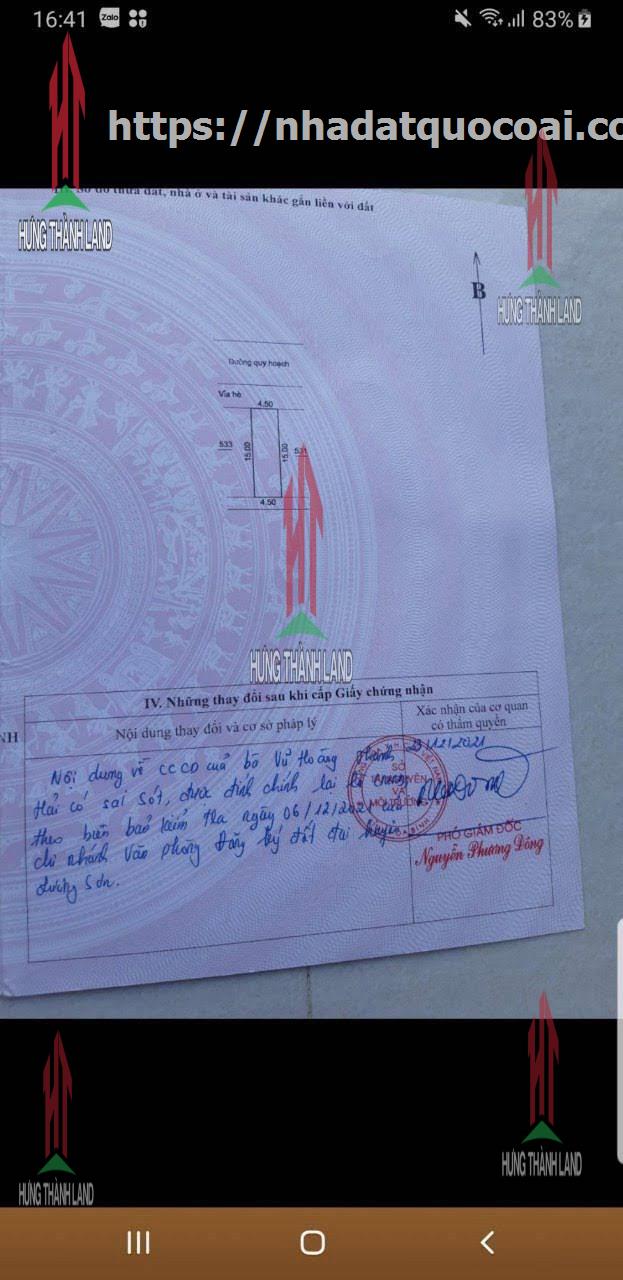 16:41
Zalo
83%
https://nhadatquocoai.co
III. Sơ đồ thửa đất, nhà ở và tài sản khác gắn liền với đất
HƯNG THÀNH LAND
HƯNG THÀNH LAND
B
Đường quy hoạch
Vỉa hè
4.50
533
15.00
15.00
531
4.50
HƯNG THÀNH LAND
IV. Những thay đổi sau khi cấp Giấy chứng nhận
NH
Nội dung thay đổi và cơ sở pháp lý
Xác nhận của cơ quan
có thẩm quyền
Nội dung về CCCD của bà Vũ Hoàng Thanh
Hải có sai sót, được đính chính lại
theo biên bản kiểm tra ngày 06/12/2021 của
chi nhánh Văn phòng Đăng ký đất đai huyện
Lương Sơn.
23/12/2021
SỞ
TÀI NGUYÊN
VÀ
MÔI TRƯỜNG
PHÓ GIÁM ĐỐC
Nguyễn Phương Đông
HƯNG THÀNH LAND
HƯNG THÀNH LAND